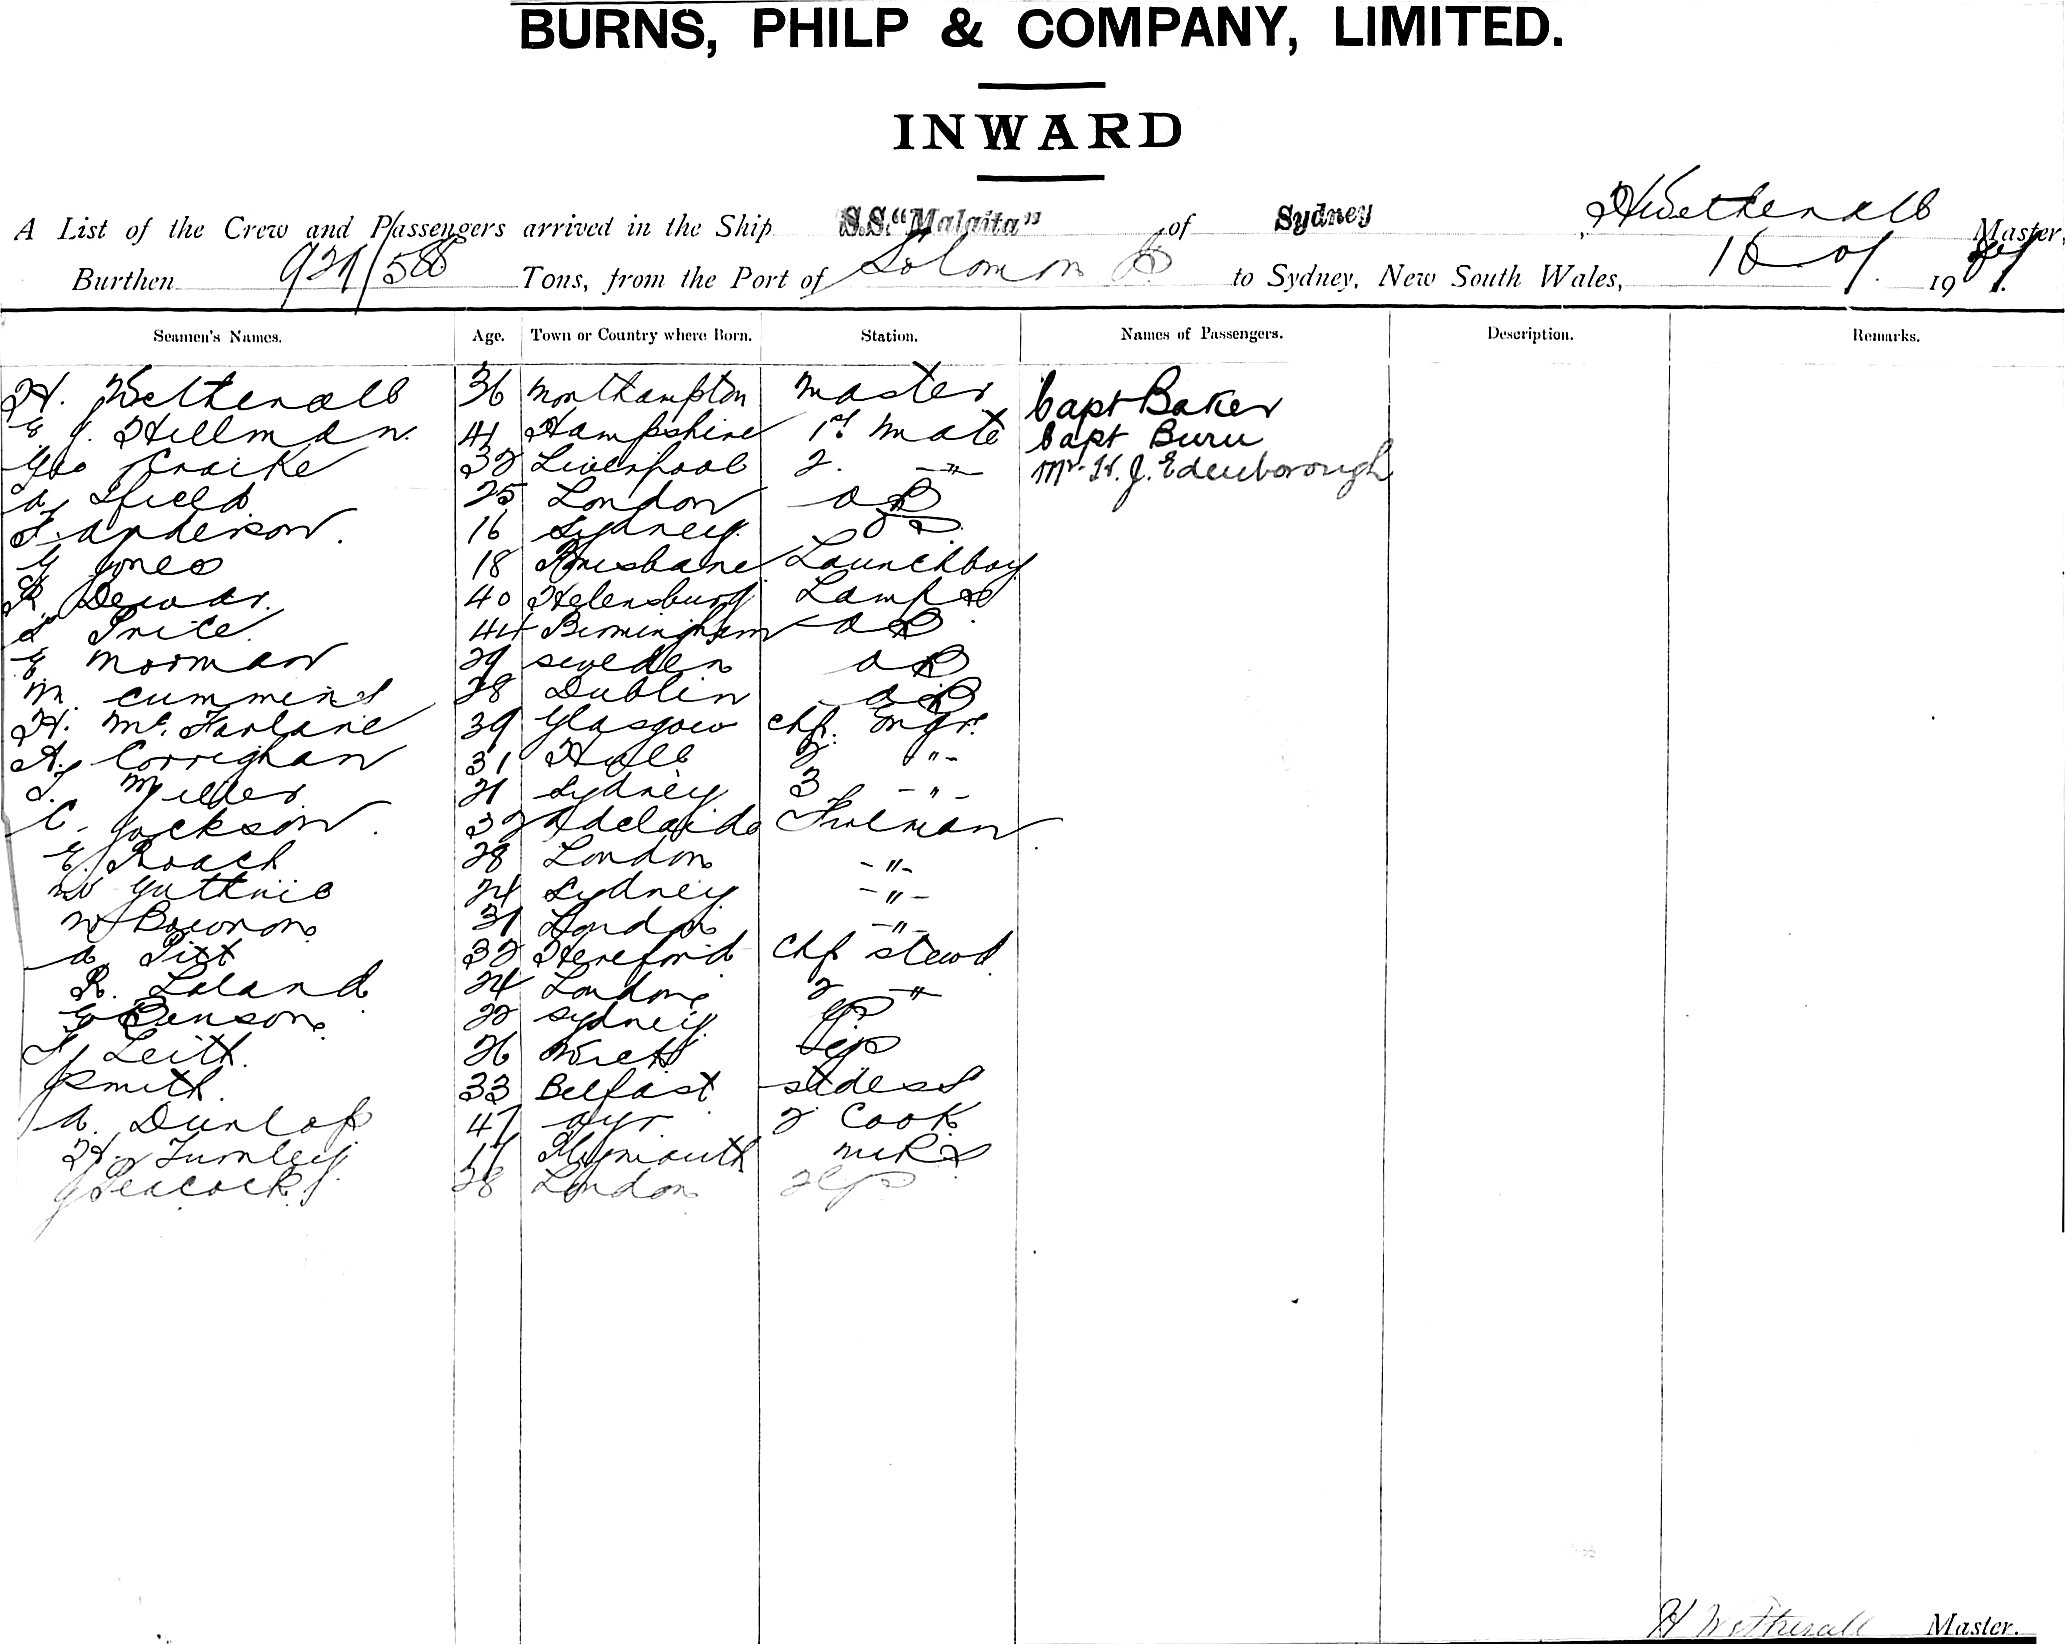 BURNS, PHILP & COMPANY, LIMITED.
INWARD
A List of the Crew and Passengers arrived in the Ship S.S. "Malaita" of Sydney, H Wetherall Master,
Burthen 929/588 Tons, from the Port of Solomon Is to Sydney, New South Wales, 19
Seamen's Names. Age. Town or Country where Born. Station. Names of Passengers. Description. Remarks.
H. Wetherall 36 Northampton Master Capt Baker
E J. Hillman 41 Hampshire 1st Mate Capt Buru
Geo Craike 32 Liverpool 2. -"- Mr H. J. Edenborough
A Ifield 25 London AB
F. Anderson. 16 Sydney. OS.
E Jones 18 Brisbane Launchboy
R. Dewar. 40 Helensburg Lamps
Price. 44 Birmingham AB
E Norman 29 Sweden AB
M. Cummins 28 Dublin AB
H. McFarlane 39 Glasgow Chf. Engr.
A. Corrighan 31 Hull 2 "-
Miller 21 Sydney 3 -"-
C. Jackson. 32 Adelaide Fireman
E. Roach 28 London -"-
W Guthrie 24 Sydney -"-
W Bowron 31 London -"-
A Pitt 32 Hereford Chf Stewd
R. Leland 24 London 2 -"-
E Benson 22 Sydney
Leith. 26
J Smith. 33 Belfast Stdess
A. Dunlop 47 Ayr 2 Cook
H. Turnley 17 Plymouth
J Peacock 28 London
H Wetherall Master.